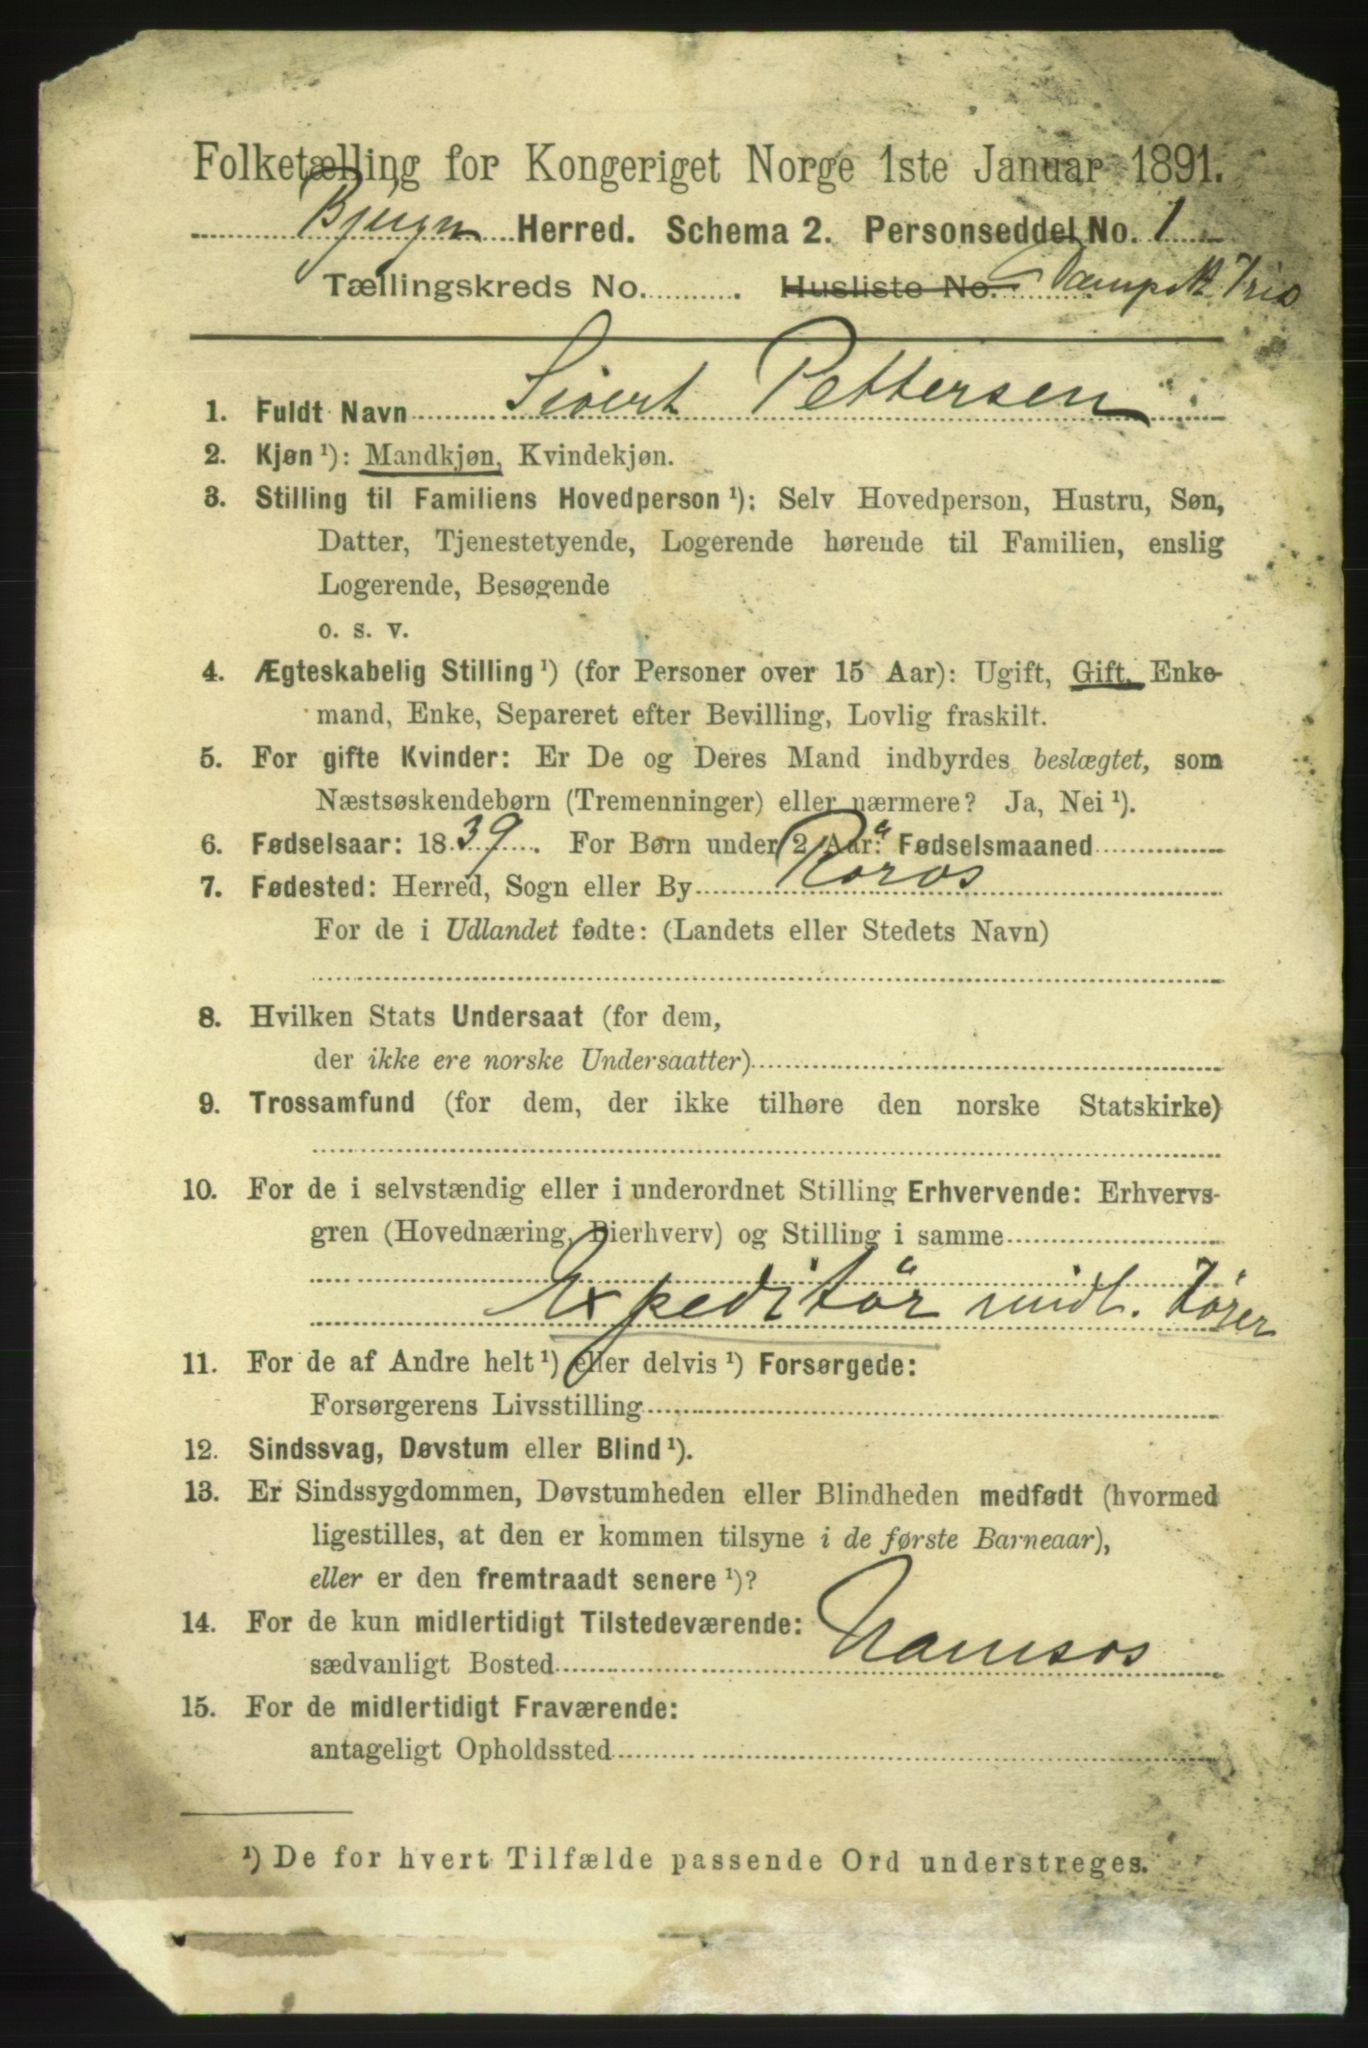 Folketælling for Kongeriget Norge 1ste Januar 1891.
Bjugn Herred. Schema 2. Personseddel No. 1
Tællingskreds No. . Husliste No. Dampsk. Trio
1. Fuldt Navn Sivert Pettersen
2. Kjøn ¹): Mandkjøn, Kvindekjøn.
3. Stilling til Familiens Hovedperson ¹): Selv Hovedperson, Hustru, Søn,
Datter, Tjenestetyende, Logerende hørende til Familien, enslig
Logerende, Besøgende
o. s. v.
4. Ægteskabelig Stilling ¹) (for Personer over 15 Aar): Ugift, Gift, Enke-
mand, Enke, Separeret efter Bevilling, Lovlig fraskilt.
5. For gifte Kvinder: Er De og Deres Mand indbyrdes beslægtet, som
Næstsøskendebørn (Tremenninger) eller nærmere? Ja, Nei ¹).
6. Fødselsaar: 1839. For Børn under 2 Aar: Fødselsmaaned
7. Fødested: Herred, Sogn eller By Röros
For de i Udlandet fødte: (Landets eller Stedets Navn)
8. Hvilken Stats Undersaat (for dem,
der ikke ere norske Undersaatter)
9. Trossamfund (for dem, der ikke tilhøre den norske Statskirke)
10. For de i selvstændig eller i underordnet Stilling Erhvervende: Erhvervs-
gren (Hovednæring, Bierhverv) og Stilling i samme
Expeditör midl.
11. For de af Andre helt ¹) eller delvis ¹) Forsørgede:
Forsørgerens Livsstilling
12. Sindssvag, Døvstum eller Blind ¹).
13. Er Sindssygdommen, Døvstumheden eller Blindheden medfødt (hvormed
ligestilles, at den er kommen tilsyne i de første Barneaar),
eller er den fremtraadt senere ¹)?
14. For de kun midlertidigt Tilstedeværende:
sædvanligt Bosted Namsos
15. For de midlertidigt Fraværende:
antageligt Opholdssted
¹) De for hvert Tilfælde passende Ord understreges.